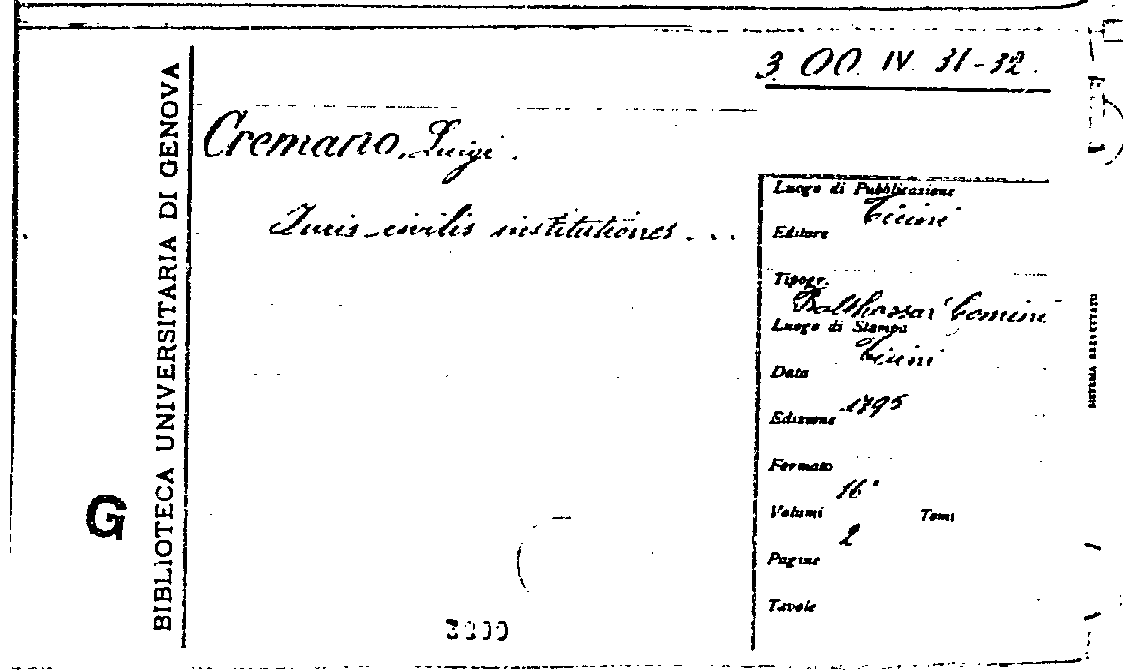 3. OO. IV. 31-32.
BIBLIOTECA UNIVERSITARIA DI GENOVA
G
Cremano, Luigi.
Juris civilis institutiones...
Luogo di Pubblicazione
Ticini
Editore
Tipogr.
Balthassar Comini
Luogo di Stampa
Ticini
Data
1795
Edizione
Formato
16°
Volumi Tomi
2
Pagine
Tavole
SISTEMA BREVETTATO